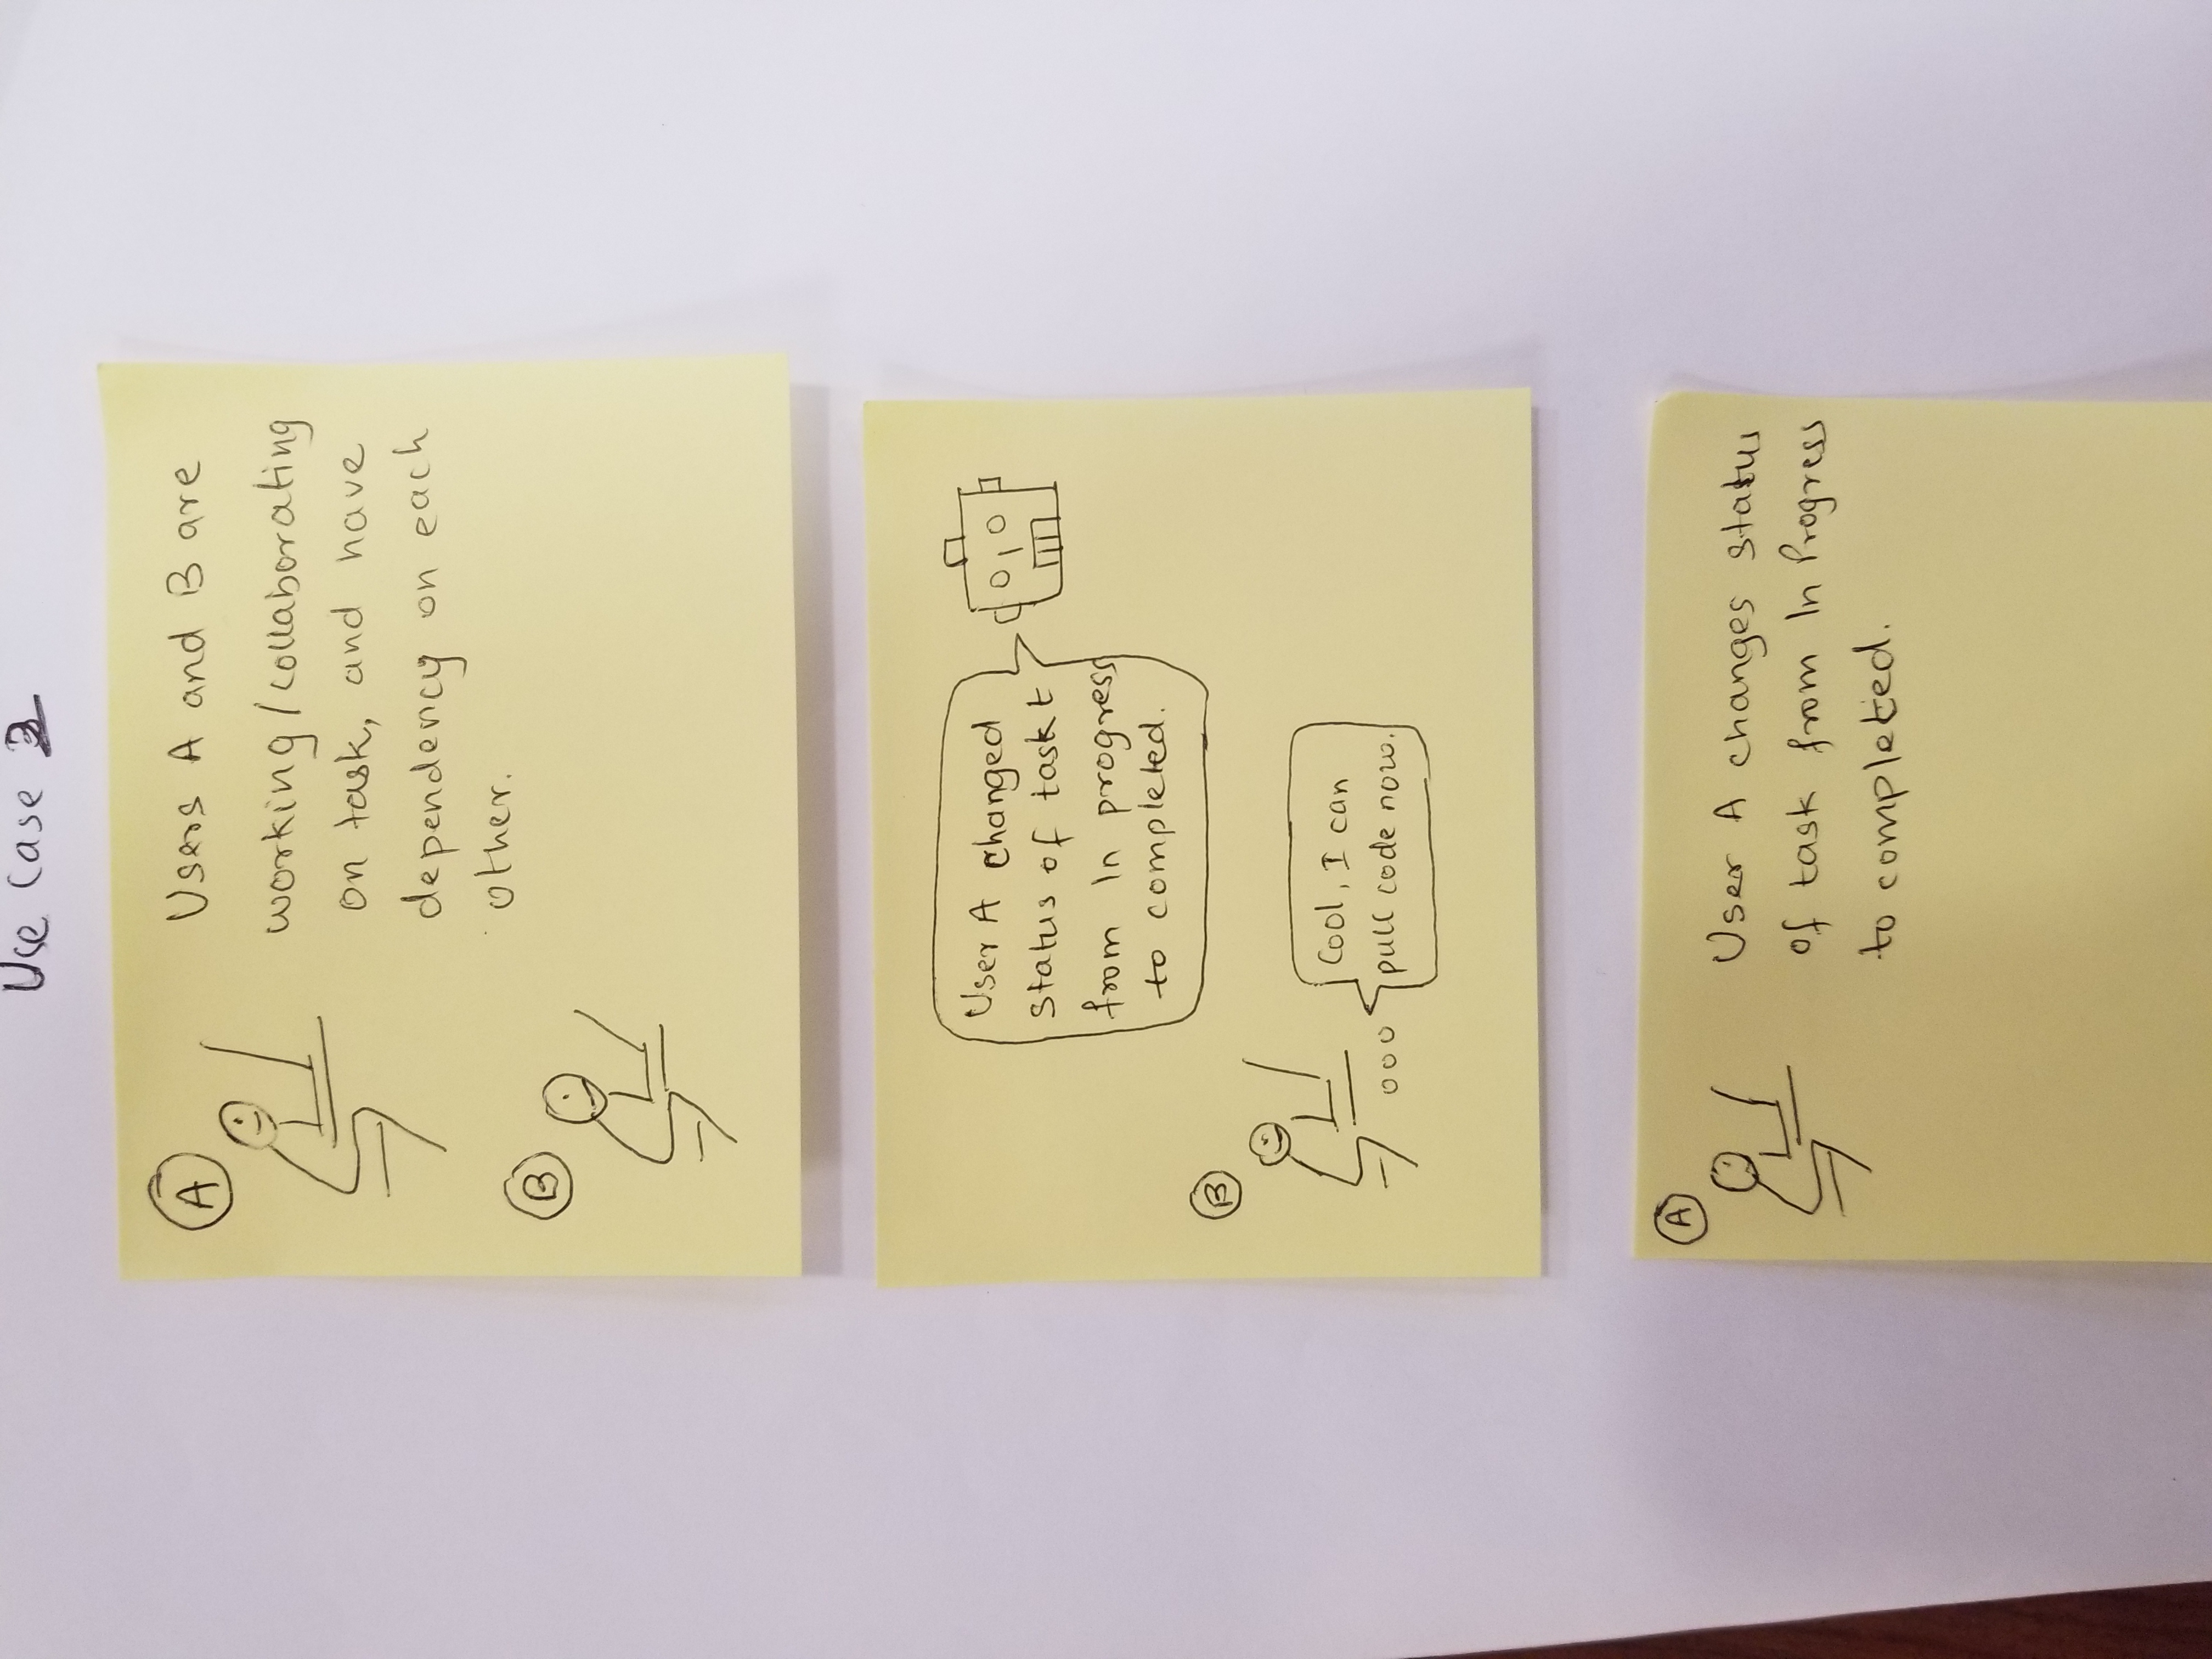 Use Case
A
Users A and B are
working/collaborating
on task, and have
dependency on each
other.
B
User A changed
status of task t
from In progress
to completed.
B
Cool, I can
pull code now.
A
User A changes status
of task from In Progress
to completed.